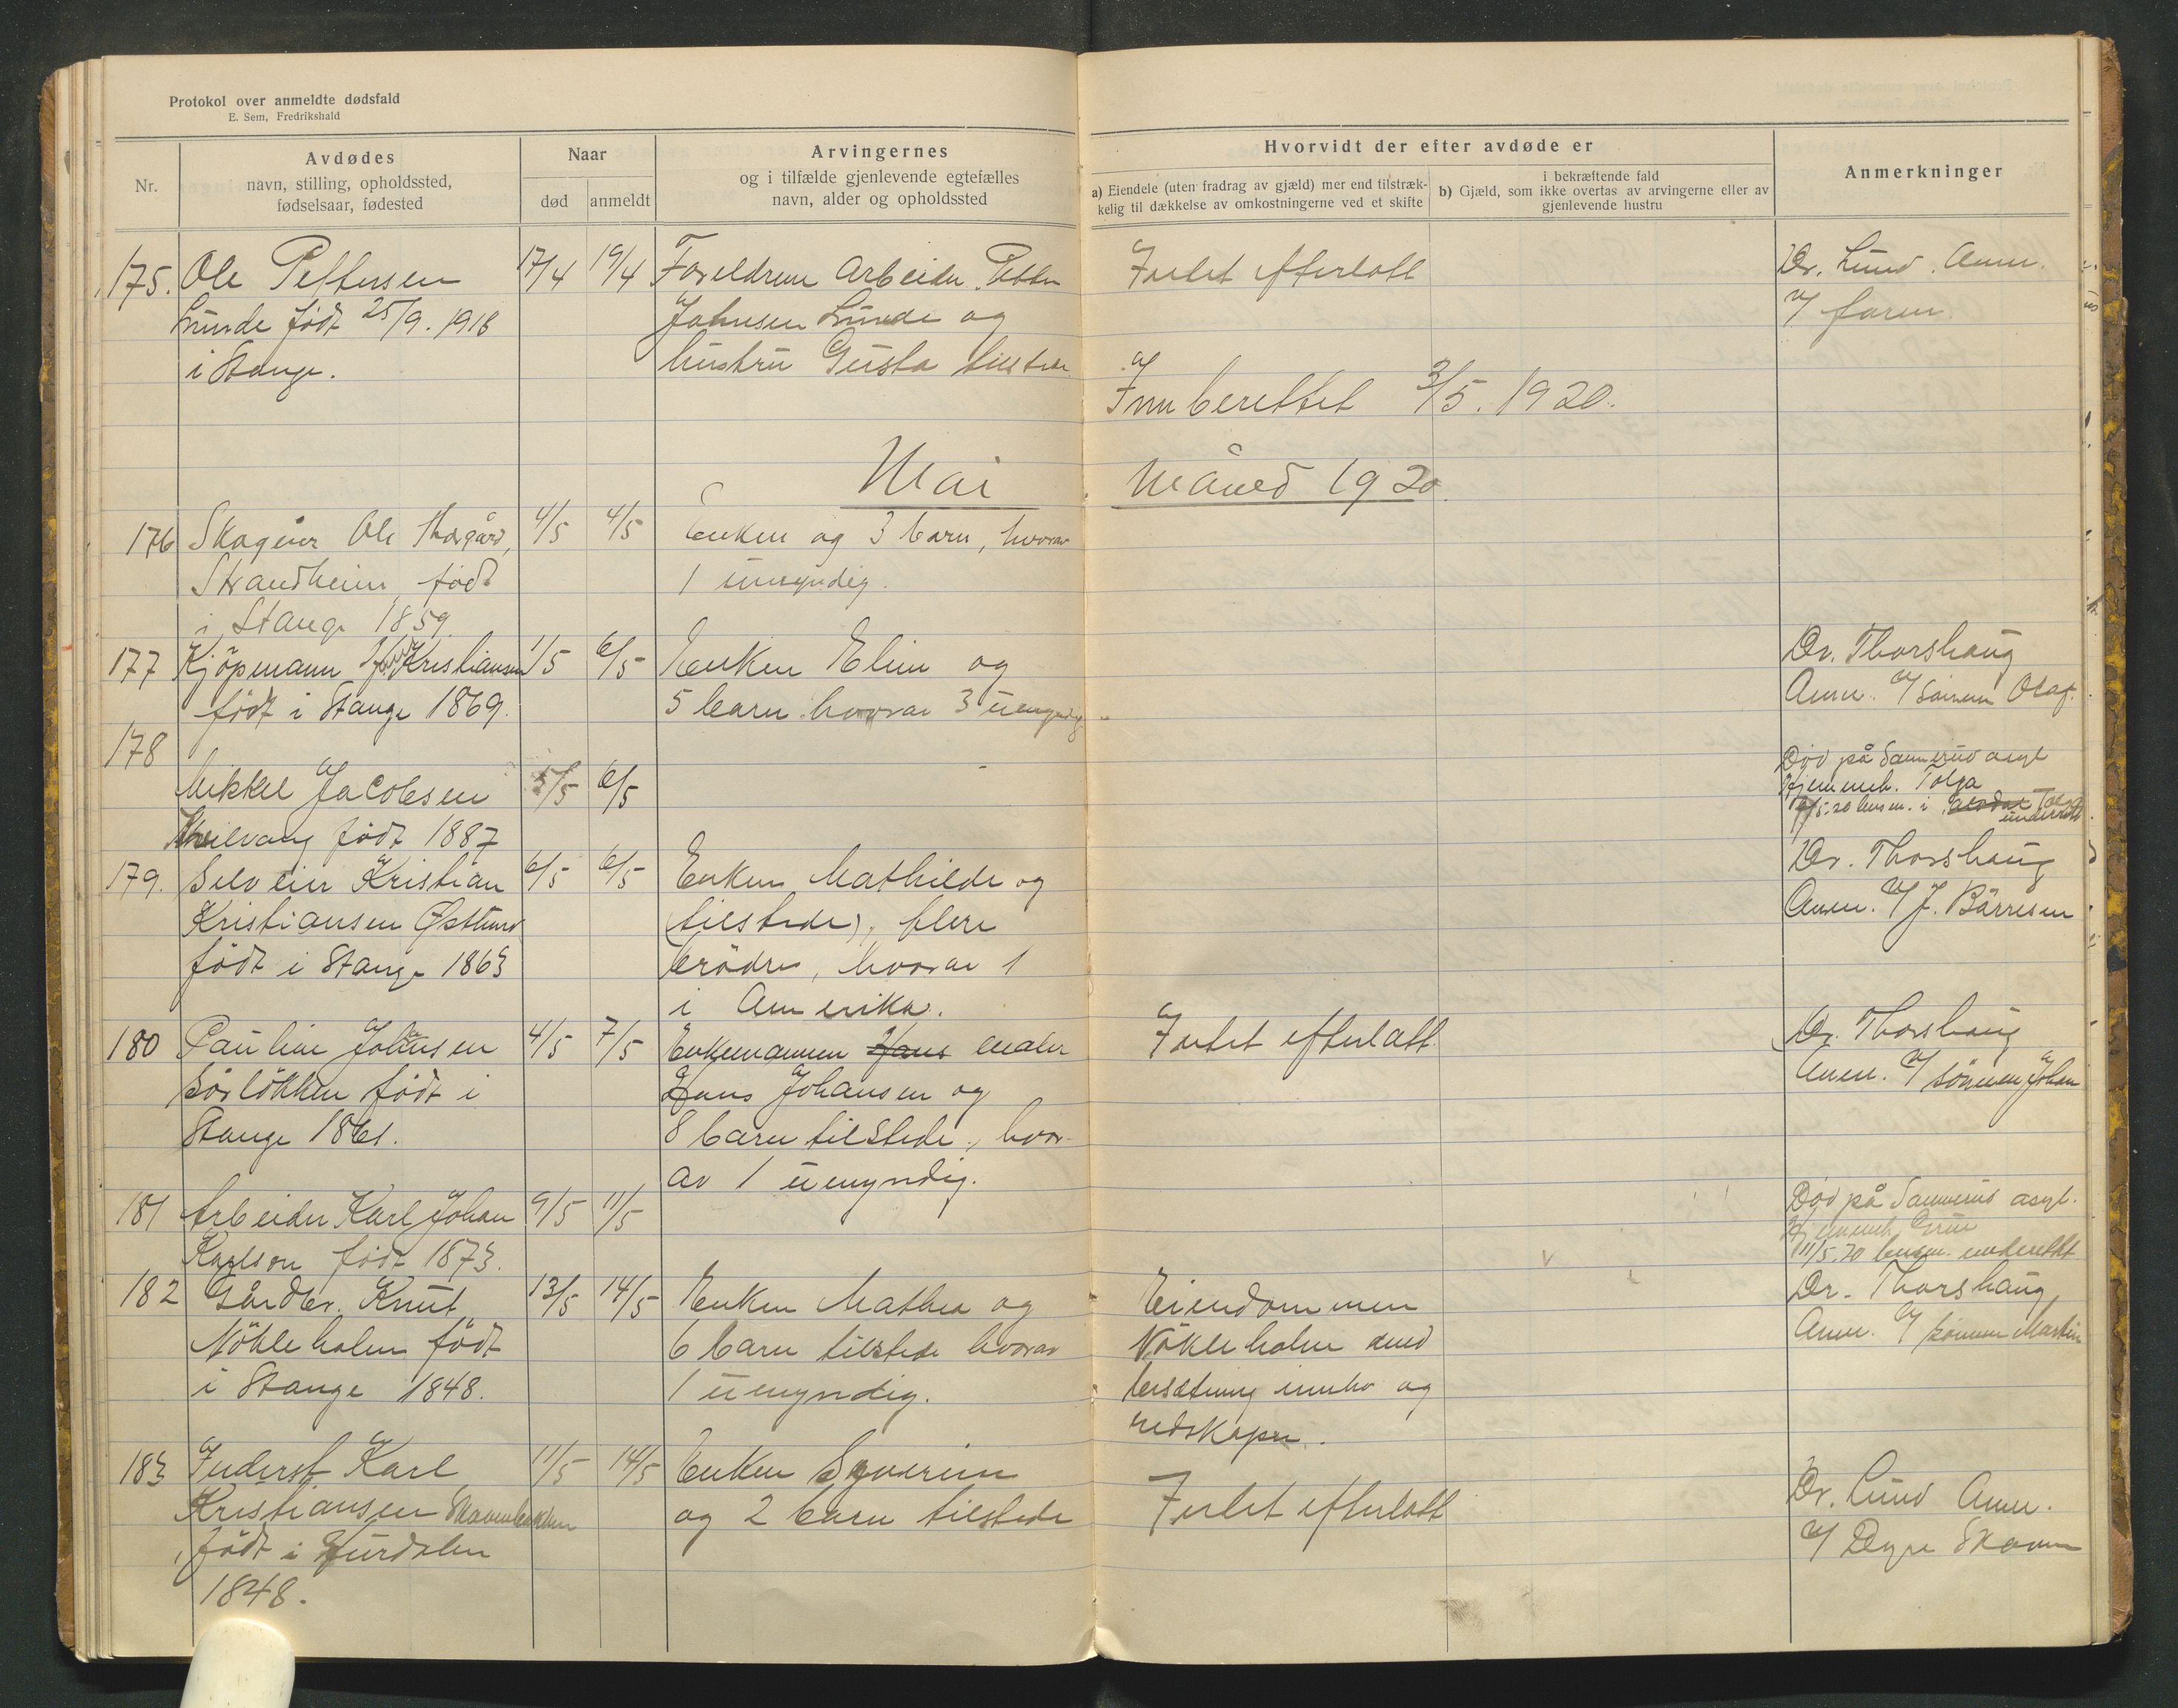 Protokol over anmeldte dødsfald
E. Sem, Fredrikshald
Nr.
Avdødes
navn, stilling, opholdssted,
fødselsaar, fødested
Naar
død
anmeldt
Arvingernes
og i tilfælde gjenlevende egtefælles
navn, alder og opholdssted
Hvorvidt der efter avdøde er
a) Eiendele (uten fradrag av gjæld) mer end tilstræk-
kelig til dækkelse av omkostningerne ved et skifte
i bekræftende fald
b) Gjæld, som ikke overtas av arvingerne eller av
gjenlevende hustru
Anmerkninger
175. Ole Pettersen 17/4 19/4 Foreldrene Arbeider Petter Intet efterlatt Dr. Lund. Anm.
Lunde født 25/9. 1916 Johnsen Lunde og v/ faren
i Stange. hustru Gusta tilstede
Innberettet 3/5. 1920.
Mai Måned 1920.
176 Skogeier Ole 4/5 4/5 Enken og 3 barn, hvorav
Strandheim født 1 umyndig.
i Stange 1859.
177 Kjöpmann Kristiansen 1/5 6/5 Enken Eline og Dr. Thorshaug
født i Stange 1869. 5 barn hvorav 3 umyndig Anm. v/ sønnen Olaf.
178
Mikkel Jacobsen 5/5 6/5 Død på Sannerud asyl
født 1887 Hjemmeh. Tolga
179. Selveier Kristian 6/5 6/5 Enken Mathilde og Dr. Thorshaug
Kristiansen Østlund (tilstede), flere Anm. v/ J. Börresen
född i Stange 1863 brödre, hvorav 1
i Amerika.
180 Pauline Johansen 4/5 7/5 Enkemannen Hans maler Intet efterlatt. Dr. Thorshaug
Sörlökken født i Hans Johansen og Anm. v/ sönnen Johan
Stange 1861. 8 barn tilstede, hvor-
av 1 umyndig.
181 Arbeider Karl Johan 9/5 11/5 Død på Sannerud asyl.
Karlson født 1873. Hjemmeh. Grue
11/5.20 underettet
182 Gårdbr. Knut 13/5 14/5 Enken Mathea og Eiendommen Dr. Thorshaug,
Nökleholm født 6 barn tilstede hvorav Nökleholm med Anm. v/ sönnen Martin
i Stange 1848. 1 umyndig. besætning innbo og
redskaper.
183 Inderst Karl 11/5 14/5 Enken Severine Intet efterlatt Dr. Lund Anm.
Kristiansen og 2 barn tilstede v/ Dyre
født i Hurdalen
1848.